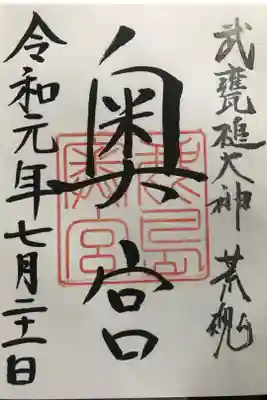 武甕槌大神 荒魂
奥宮
鹿島
奥宮
令和元年七月二十一日